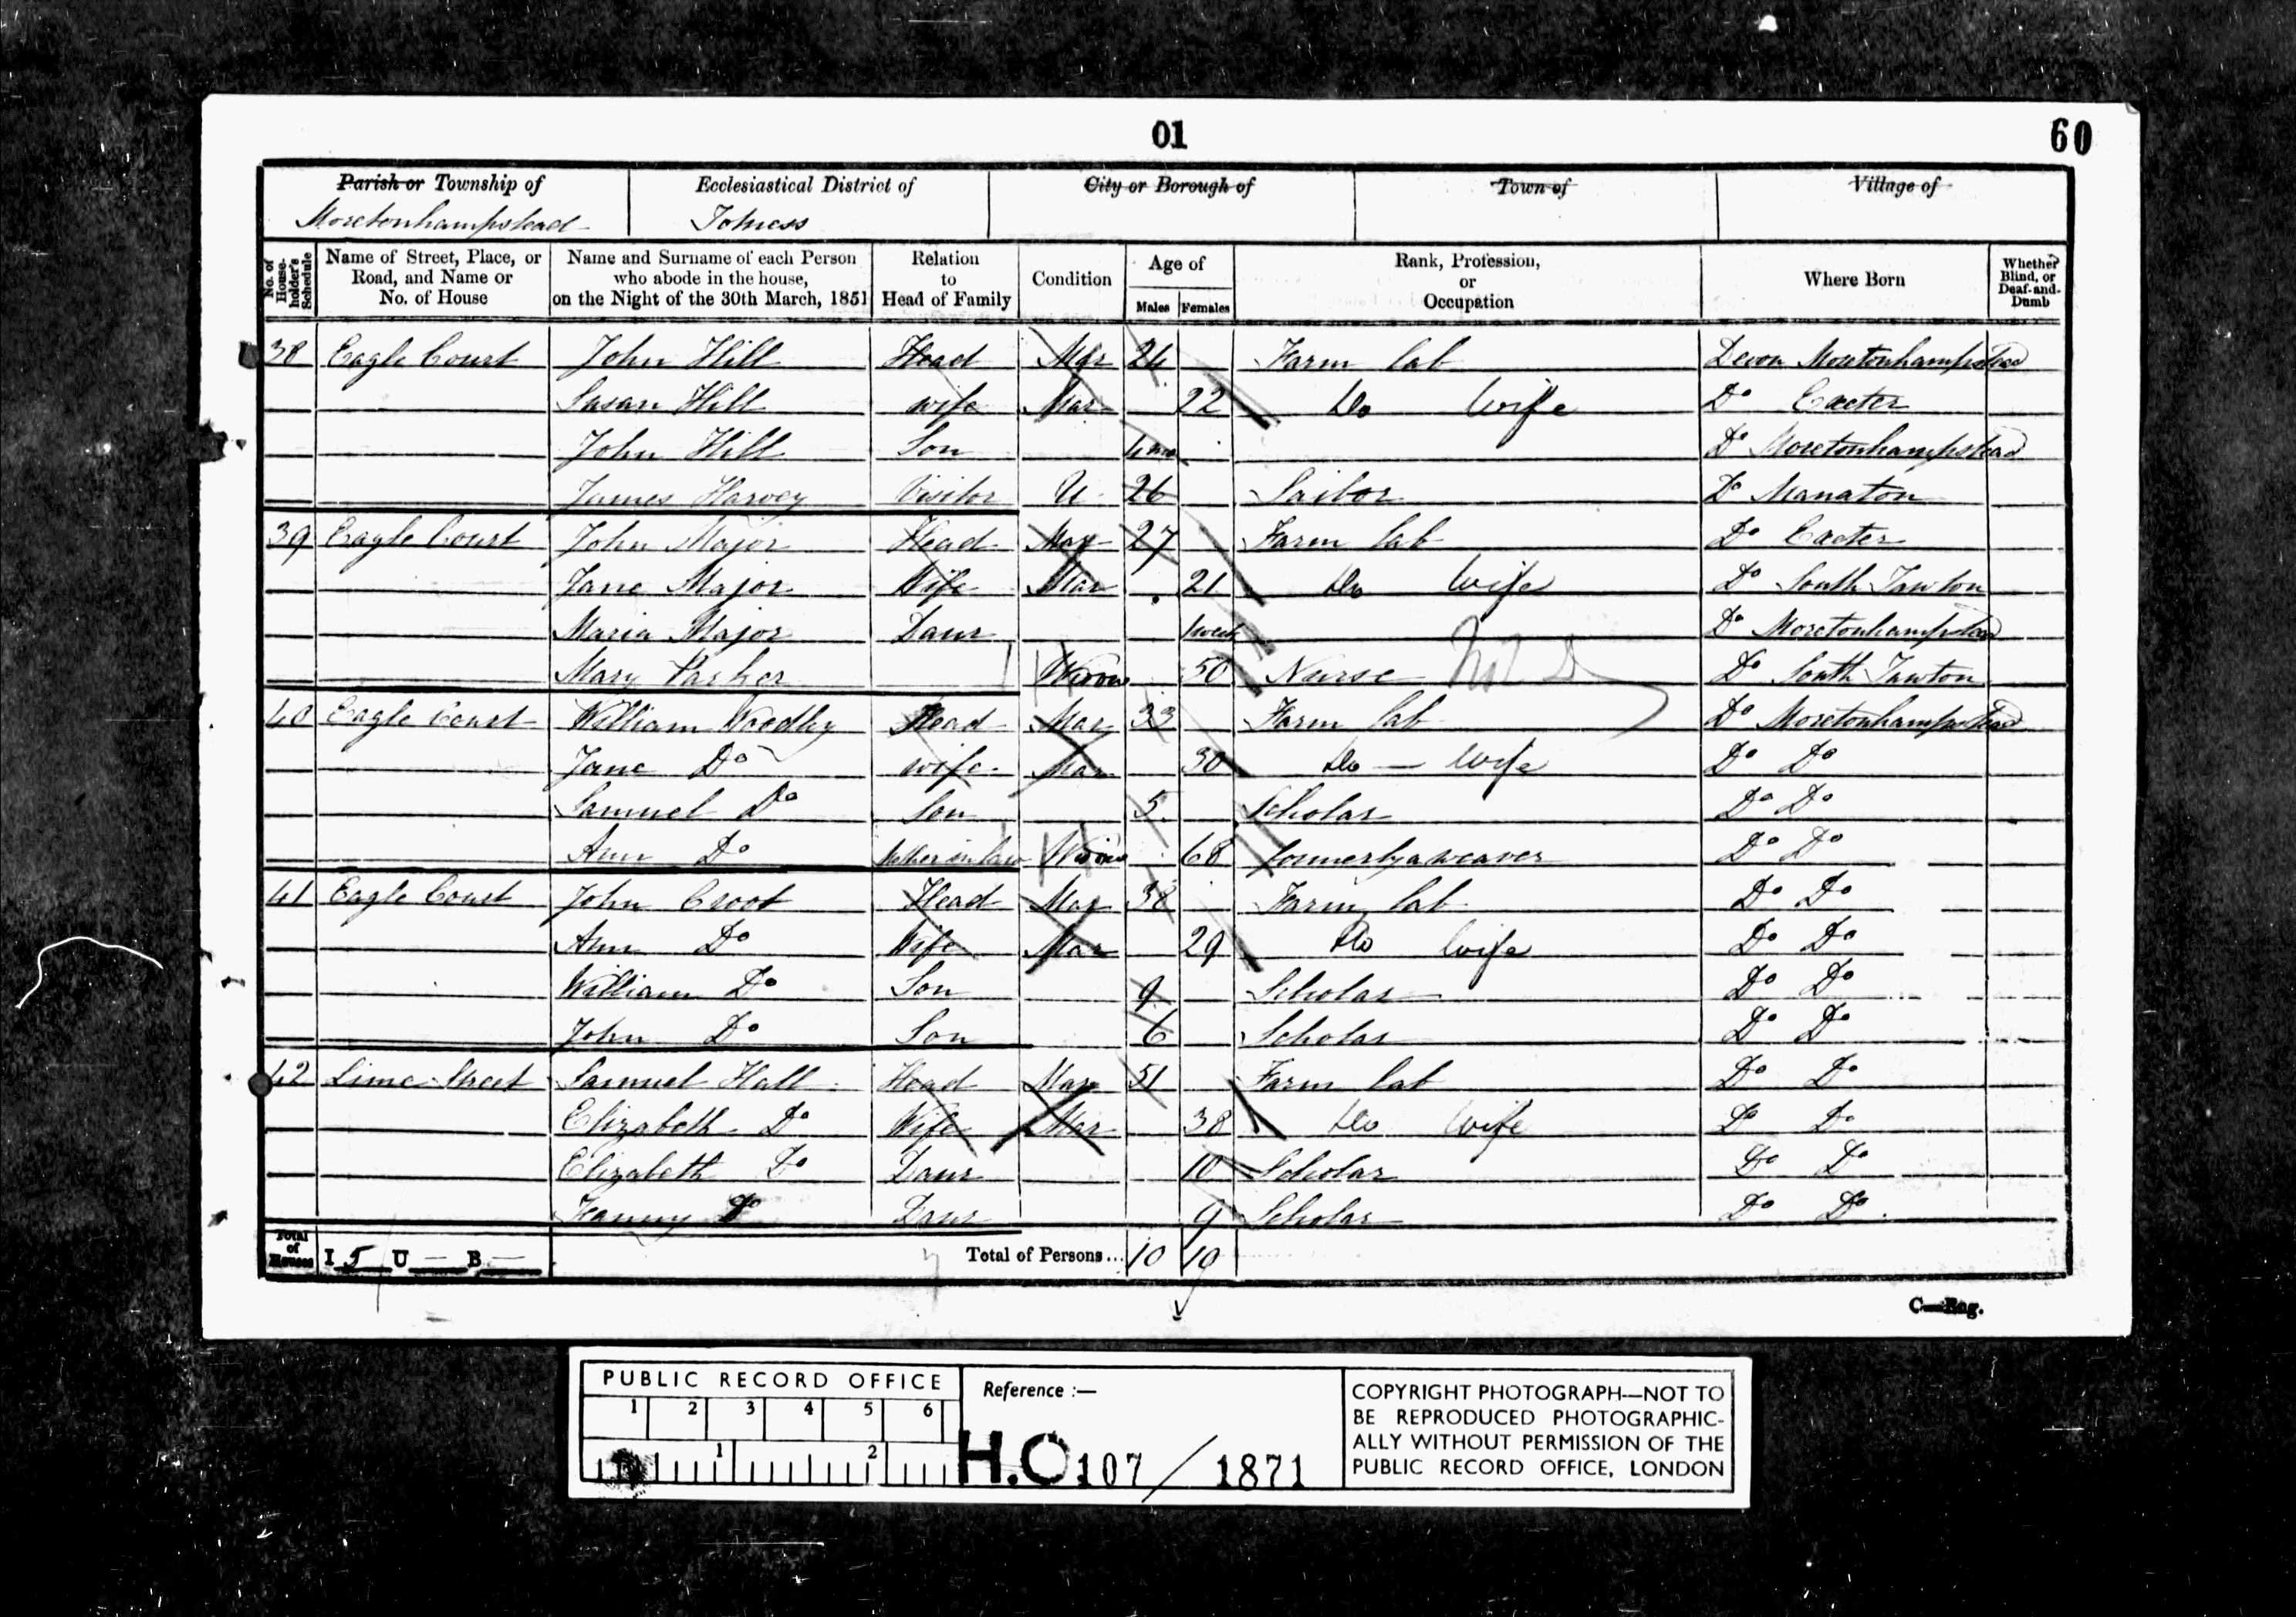 01
60
Parish or Township of Ecclesiastical District of City or Borough of Town of Village of
Moretonhampstead Totness
No. of House-holder's Schedule Name of Street, Place, or Road, and Name or No. of House Name and Surname of each Person who abode in the house, on the Night of the 30th March, 1851 Relation to Head of Family Condition Age of Males Females Rank, Profession, or Occupation Where Born Whether Blind, or Deaf-and-Dumb
38 Eagle Court John Hill Head Mar 24 Farm lab Devon Moretonhampstead
Susan Hill wife Mar 22 Do wife Do Exeter
John Hill Son 4 mo Do Moretonhampstead
James Harvey Visitor U 26 Do Manaton
39 Eagle Court John Major Head Mar 27 Farm lab Do Exeter
Jane Major Wife Mar 21 Do wife Do South Tawton
Maria Major Daur 1 week Do Moretonhampstead
Mary Parker Widow 50 Nurse Do South Tawton
40 Eagle Court William Woodley Head Mar 33 Farm lab Do Moretonhampstead
Jane Do wife Mar 30 Do wife Do Do
Samuel Do Son 5 Scholar Do Do
Ann Do Mother in law Widow 68 formerly a weaver Do Do
41 Eagle Court John Croot Head Mar 38 Farm lab Do Do
Ann Do Wife Mar 29 Do wife Do Do
William Do Son 9 Scholar Do Do
John Do Son 6 Scholar Do Do
42 Lime Street Samuel Hall Head Mar 51 Farm lab Do Do
Elizabeth Do Wife Mar 38 Do wife Do Do
Elizabeth Do Daur 10 Scholar Do Do
Do Daur 9 Scholar Do Do
Total of Houses I 5 U — B — Total of Persons... 10 10
C—Eng.
PUBLIC RECORD OFFICE
1 2 3 4 5 6
1 2
Reference :—
H.O. 107 / 1871
COPYRIGHT PHOTOGRAPH—NOT TO
BE REPRODUCED PHOTOGRAPHIC-
ALLY WITHOUT PERMISSION OF THE
PUBLIC RECORD OFFICE, LONDON